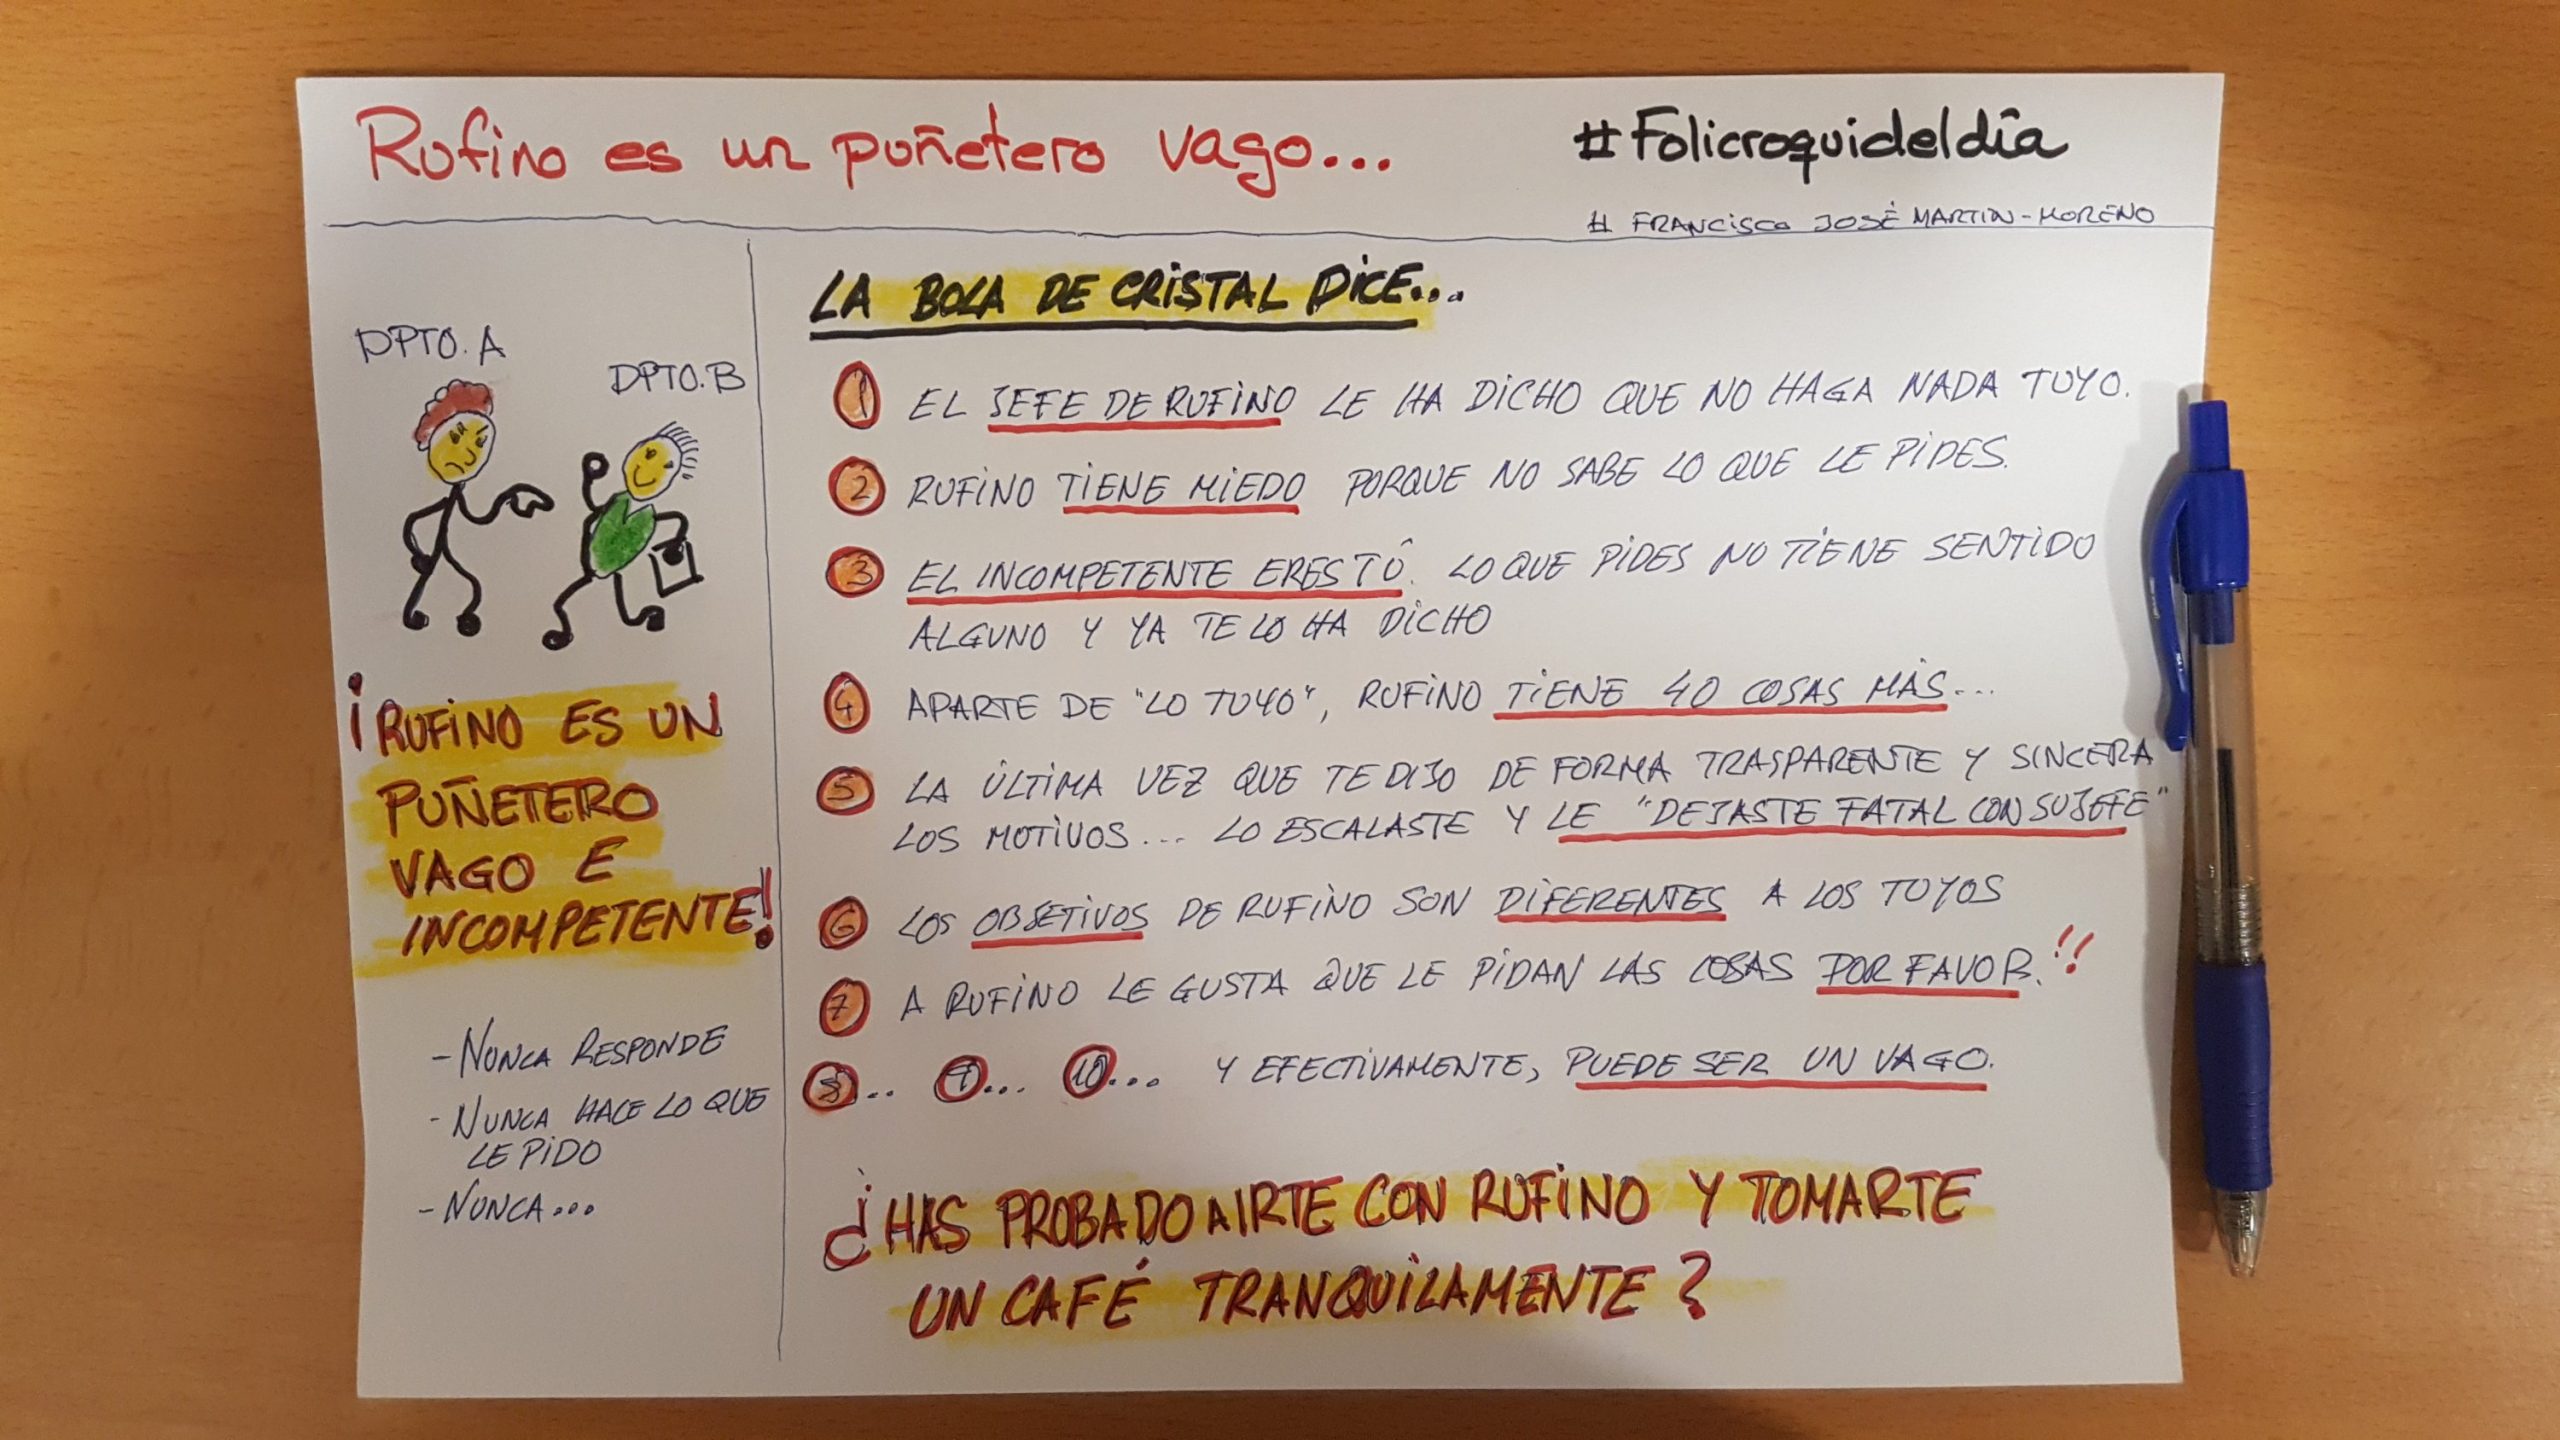 Rufino es un puñetero vago...
#Folicroquideldía
# FRANCISCO JOSÉ MARTIN-MORENO
DPTO. A
DPTO. B
¡RUFINO ES UN
PUÑETERO
VAGO E
INCOMPETENTE!
- NUNCA RESPONDE
- NUNCA HACE LO QUE
LE PIDO
- NUNCA...
LA BOLA DE CRISTAL DICE...
1 EL JEFE DE RUFINO LE HA DICHO QUE NO HAGA NADA TUYO.
2 RUFINO TIENE MIEDO PORQUE NO SABE LO QUE LE PIDES.
3 EL INCOMPETENTE ERES TÚ. LO QUE PIDES NO TIENE SENTIDO
ALGUNO Y YA TE LO HA DICHO
4 APARTE DE "LO TUYO", RUFINO TIENE 40 COSAS MÁS...
5 LA ÚLTIMA VEZ QUE TE DIJO DE FORMA TRASPARENTE Y SINCERA
LOS MOTIVOS... LO ESCALASTE Y LE "DEJASTE FATAL CON SU JEFE"
6 LOS OBJETIVOS DE RUFINO SON DIFERENTES A LOS TUYOS
7 A RUFINO LE GUSTA QUE LE PIDAN LAS COSAS POR FAVOR.!!
8... 9... 10... Y EFECTIVAMENTE, PUEDE SER UN VAGO.
¿HAS PROBADO A IRTE CON RUFINO Y TOMARTE
UN CAFÉ TRANQUILAMENTE?